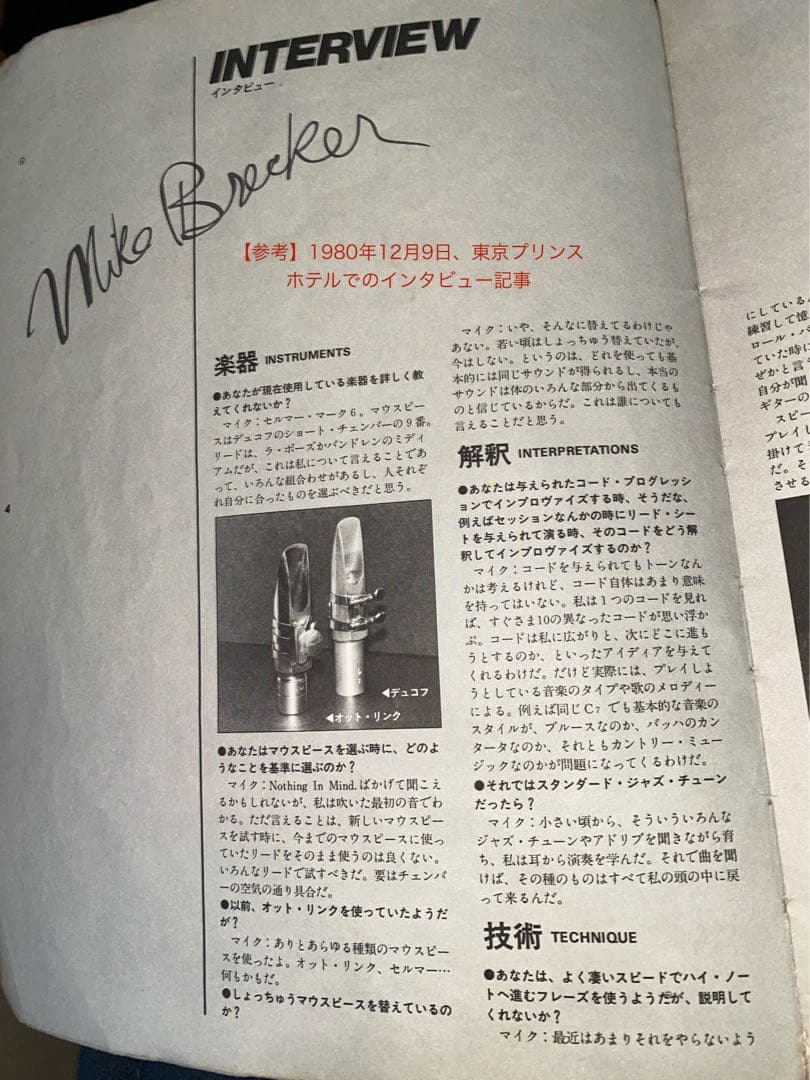 INTERVIEW
インタビュー
Mike Brecker
【参考】1980年12月9日、東京プリンス
ホテルでのインタビュー記事
楽器 INSTRUMENTS
●あなたが現在使用している楽器を詳しく教
えてくれないか？
マイク：セルマー・マーク6。マウスピー
スはデュコフのショート・チェンバーの9番。
リードは、ラ・ボーズかバンドレンのミディ
アムだが、これは私について言えることであ
って、いろんな組合わせがあるし、人それぞ
れ自分に合ったものを選ぶべきだと思う。
◀デュコフ
◀オット・リンク
●あなたはマウスピースを選ぶ時に、どのよ
うなことを基準に選ぶのか？
マイク：Nothing In Mind.ばかげて聞こえ
るかもしれないが、私は吹いた最初の音でわ
かる。ただ言えることは、新しいマウスピー
スを試す時に、今までのマウスピースに使っ
ていたリードをそのまま使うのは良くない。
いろんなリードで試すべきだ。要はチェンバ
ーの空気の通り具合だ。
●以前、オット・リンクを使っていたようだ
が？
マイク：ありとあらゆる種類のマウスピー
スを使ったよ。オット・リンク、セルマー…
何もかもだ。
●しょっちゅうマウスピースを替えているの
か？
マイク：いや、そんなに替えてるわけじゃ
あない。若い頃はしょっちゅう替えていたが、
今はしない。というのは、どれを使っても基
本的には同じサウンドが得られるし、本当の
サウンドは体のいろんな部分から出てくるも
のと信じているからだ。これは誰についても
言えることだと思う。
解釈 INTERPRETATIONS
●あなたは与えられたコード・プログレッシ
ョンでインプロヴァイズする時、そうだな、
例えばセッションなんかの時にリード・シー
トを与えられて演る時、そのコードをどう解
釈してインプロヴァイズするのか？
マイク：コードを与えられてもトーンなん
かは考えるけれど、コード自体はあまり意味
を持ってはいない。私は1つのコードを見れ
ば、すぐさま10の異なったコードが思い浮か
ぶ。コードは私に広がりと、次にどこに進も
うとするのか、といったアイディアを与えて
くれるわけだ。だけど実際には、プレイしよ
うとしている音楽のタイプや歌のメロディー
による。例えば同じC7でも基本的な音楽の
スタイルが、ブルースなのか、バッハのカン
タータなのか、それともカントリー・ミュー
ジックなのかが問題になってくるわけだ。
●それではスタンダード・ジャズ・チューン
だったら？
マイク：小さい頃から、そういういろんな
ジャズ・チューンやアドリブを聞きながら育
ち、私は耳から演奏を学んだ。それで曲を聞
けば、その種のものはすべて私の頭の中に戻
って来るんだ。
技術 TECHNIQUE
●あなたは、よく凄いスピードでハイ・ノー
トへ進むフレーズを使うようだが、説明して
くれないか？
マイク：最近はあまりそれをやらないよう
4
にしている
練習して憶
ロール・バ
ていた時に
ぜかと言う
自分が聞
ギターの
スピー
プレイし
掛けても
だ。そ
させる